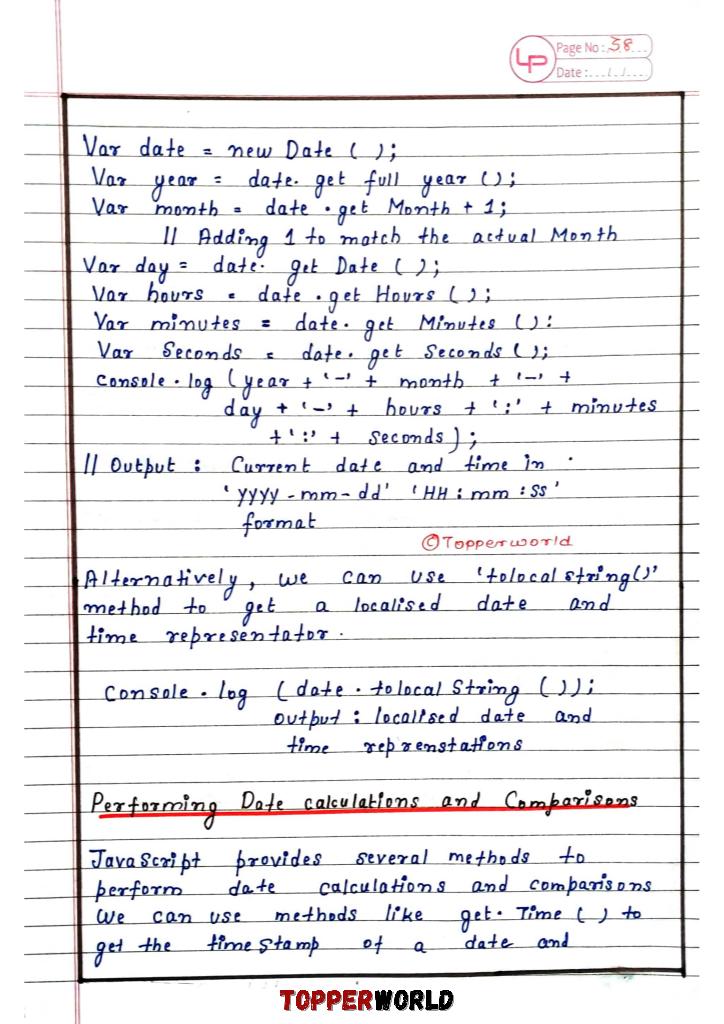 LP
Page No: 38
Date: .../.../...
Var date = new Date ( );
Var year = date. get full year ();
Var month = date . get Month + 1;
// Adding 1 to match the actual Month
Var day = date. get Date ( );
Var hours = date . get Hours ( );
Var minutes = date. get Minutes ():
Var Seconds = date. get seconds ();
console.log (year + '-' + month + '-' +
day + '-' + hours + ':' + minutes
+ ':' + seconds);
// Output : Current date and time in
'yyyy-mm-dd' 'HH:mm:SS'
format
©Topperworld
Alternatively, we can use 'tolocal string()'
method to get a localised date and
time representator.
Console.log (date . tolocal String ( ));
output : localised date and
time reprenstations
Performing Date calculations and Comparisons
JavaScript provides several methods to
perform date calculations and comparisons
We can use methods like get. Time ( ) to
get the time stamp of a date and
TOPPERWORLD